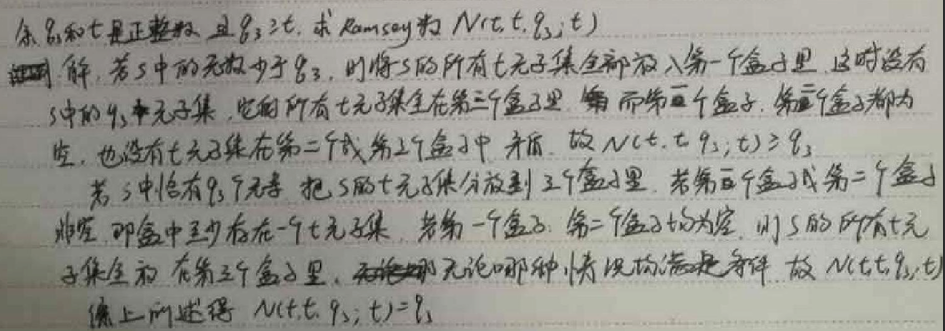 余 q₃和t是正整数 且 q₃≥t. 求 Ramsey数 N(t, t, q₃; t)
解, 若S中的元数少于q₃. 则将S的所有t元子集全部放入第一个盒子里. 这时没有
S中的q₃元子集, 它的所有t元子集全在第三个盒子里. 而第一个盒子. 第二个盒子都为
空, 也没有t元子集在第二个或第1个盒子中 矛盾. 故 N(t, t, q₃; t) ≥ q₃
若 S中恰有q₃个元素 把S的t元子集分放到三个盒子里. 若第一个盒子或第二个盒子
非空, 即盒中至少存在一个t元子集. 若第一个盒子. 第二个盒子均为空, 则S的所有t元
子集全放在第三个盒子里. 无论哪种情况均满足条件 故 N(t,t,q₃,t)
综上所述得 N(t,t,q₃; t)=q₃